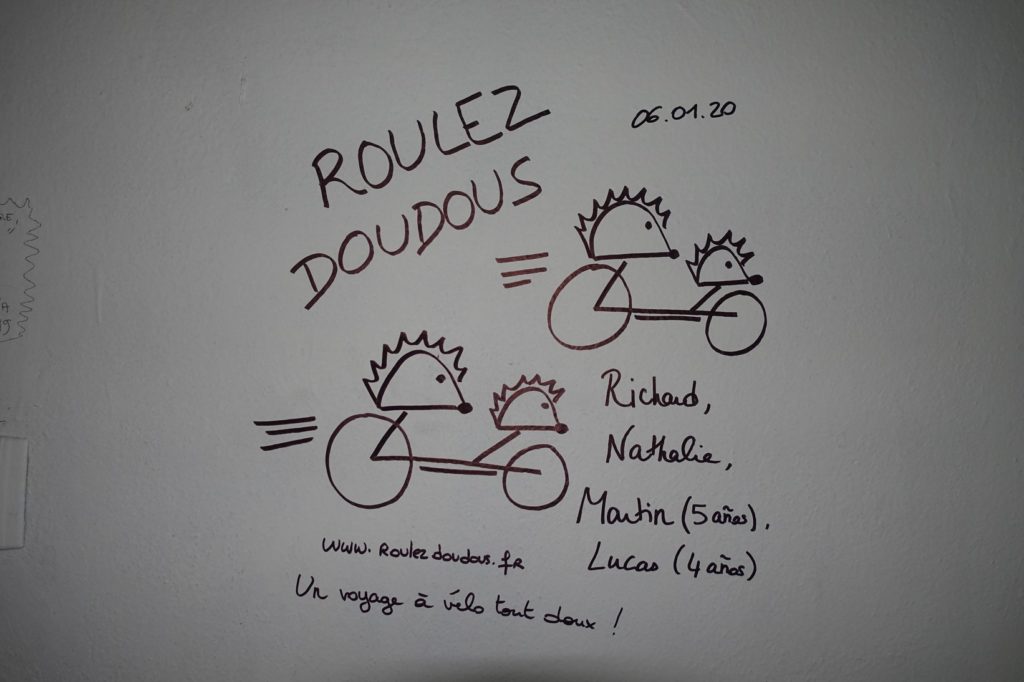 ROULEZ
DOUDOUS
06.01.20
Richard,
Nathalie,
Martin (5 años),
Lucas (4 años)
www.Roulezdoudous.fr
Un voyage à vélo tout doux !